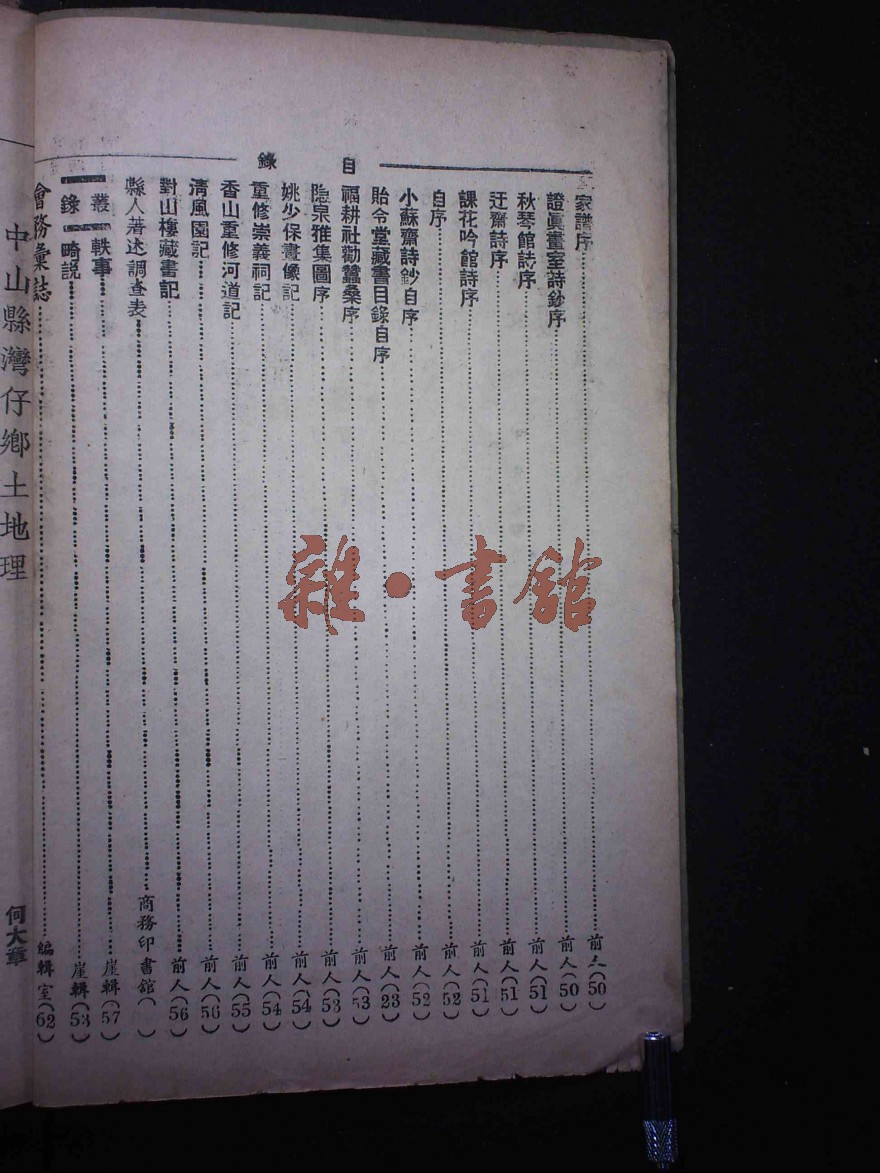 目錄
家譜序 前人(50)
證眞畫室詩鈔序 前人(50)
秋琴館詩序 前人(51)
迂齋詩序 前人(51)
課花吟館詩序 前人(51)
自序 前人(52)
小蘇齋詩鈔自序 前人(52)
貽令堂藏書目錄自序 前人(23)
福耕社勸蠶桑序 前人(53)
隱泉雅集圖序 前人(53)
姚少保畫像記 前人(54)
重修崇義祠記 前人(54)
香山重修河道記 前人(55)
淸風園記 前人(56)
對山樓藏書記 前人(56)
縣人著述調查表 商務印書館( )
叢 軼事 崖輯(57)
錄 畸説 崖輯(53)
會務彙誌 編輯室(62)
中山縣灣仔鄉土地理 何大章
雜·書館